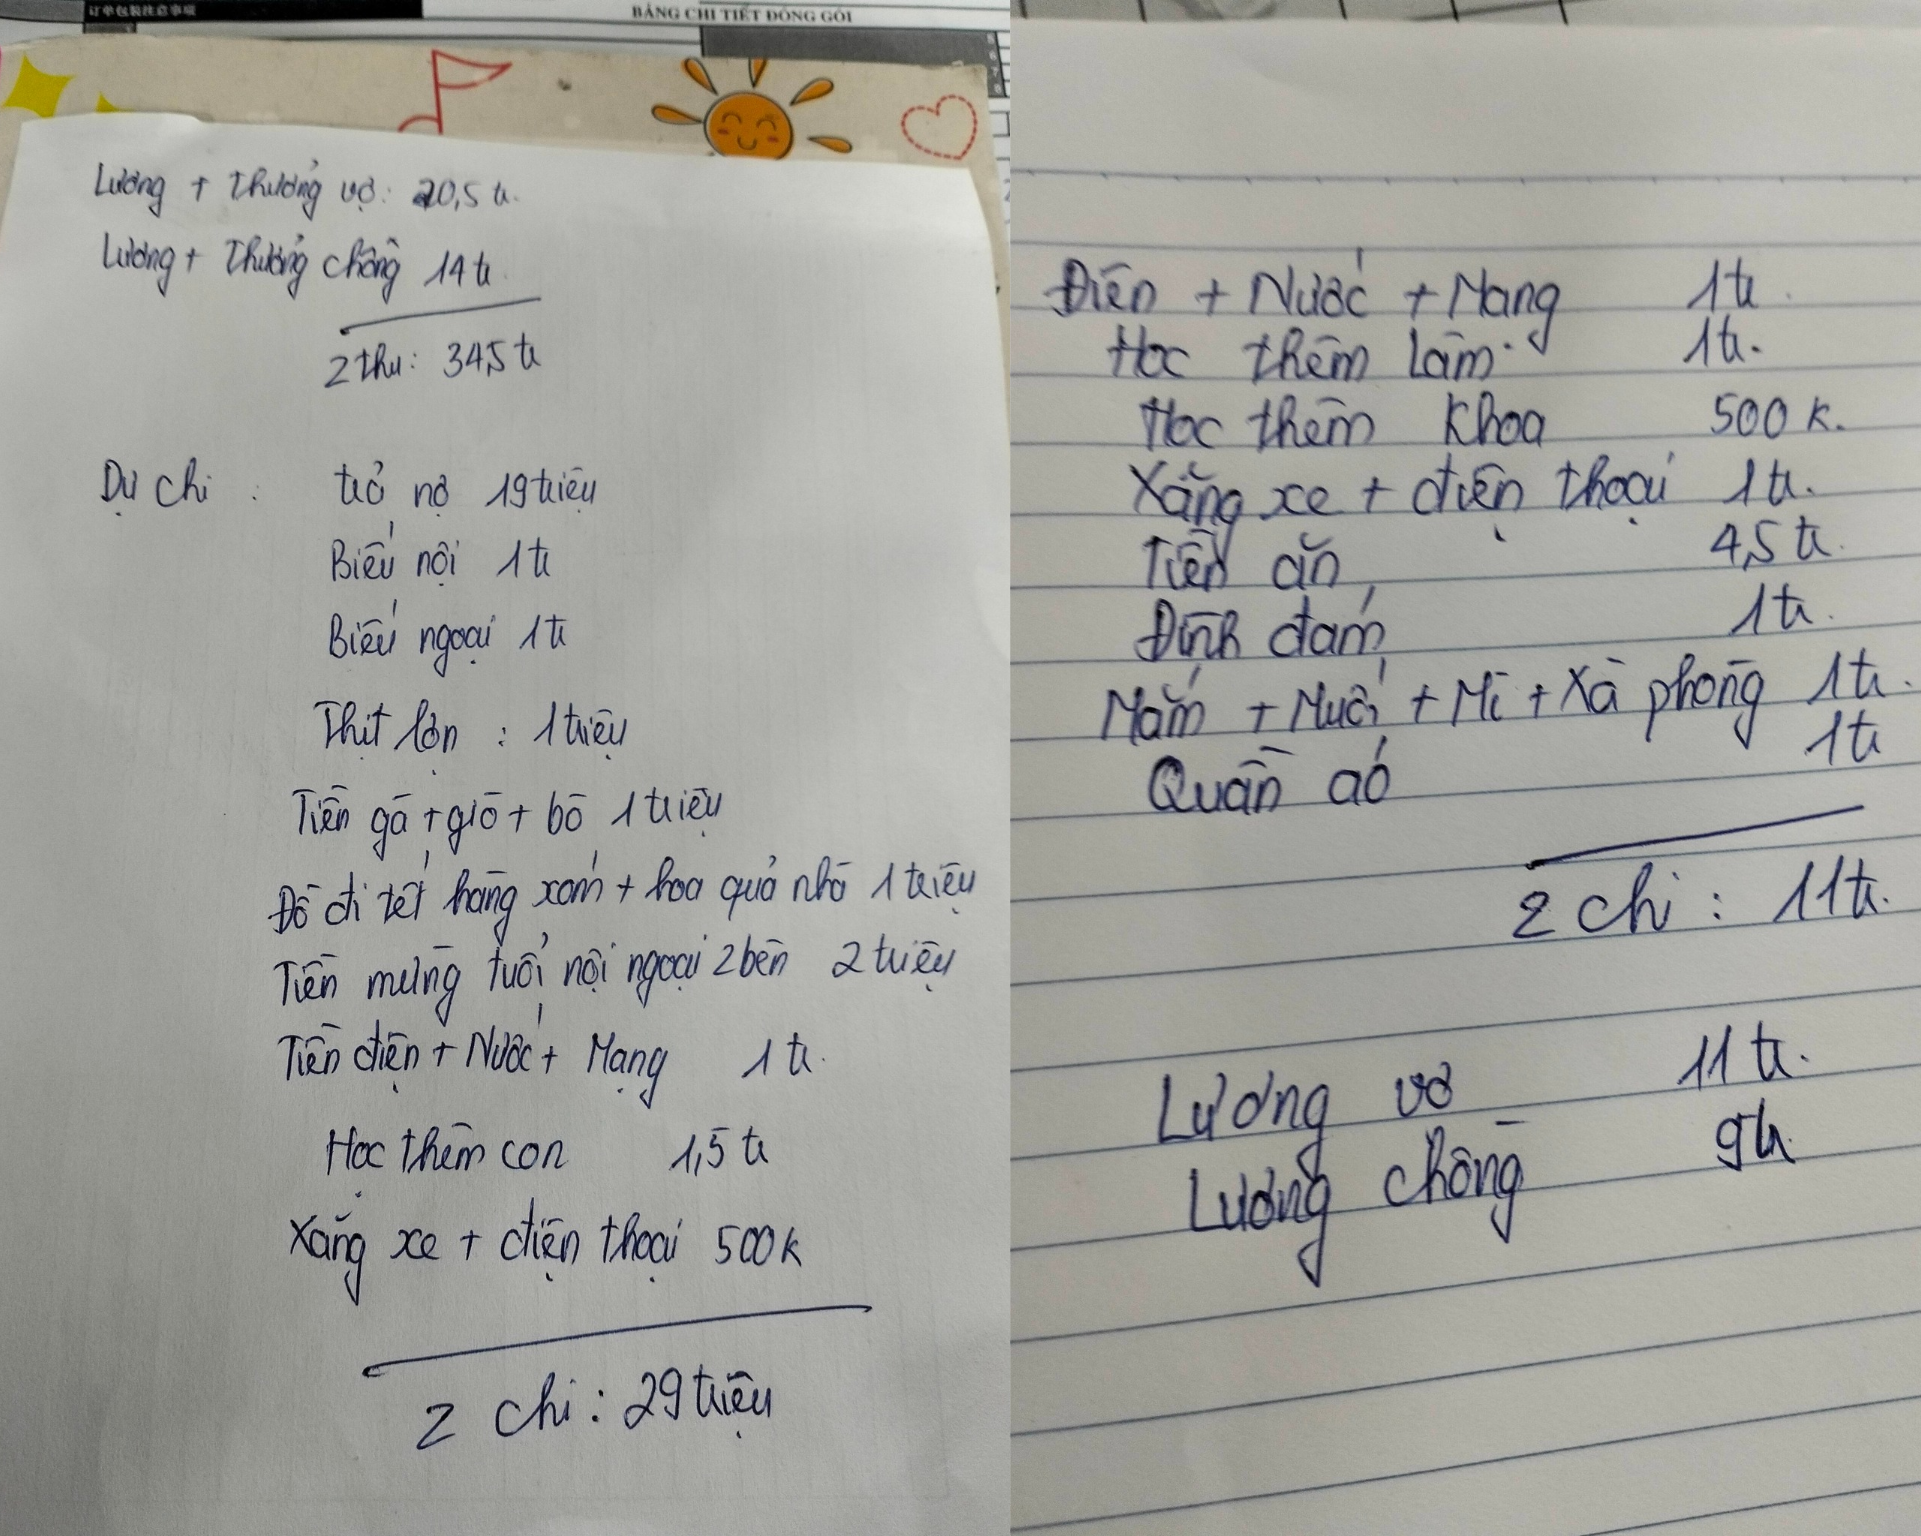 订单包装注意事项
BẢNG CHI TIẾT ĐÓNG GÓI
Lương + thưởng vợ: 20,5 tr.
Lương + Thưởng chồng 14 tr
Σ thu: 34,5 tr
Dự chi : trả nợ 19 triệu
Biếu nội 1 tr
Biếu ngoại 1 tr
Thịt lợn : 1 triệu
Tiền gà + giò + bò 1 triệu
Đồ đi tết hàng xóm + hoa quả nhà 1 triệu
Tiền mừng tuổi nội ngoại 2 bên 2 triệu
Tiền điện + Nước + Mạng 1 tr.
Học thêm con 1,5 tr
Xăng xe + điện thoại 500k
Σ chi : 29 triệu
Điện + Nước + Mạng 1 tr.
Học thêm Lâm 1 tr.
Học thêm Khoa 500 k.
Xăng xe + điện thoại 1 tr.
Tiền ăn 4,5 tr.
Đình đám 1 tr.
Mắm + Muối + Mì + Xà phòng 1 tr.
Quần áo 1 tr
Σ chi : 11 tr.
Lương vợ 11 tr.
Lương chồng 9 tr.